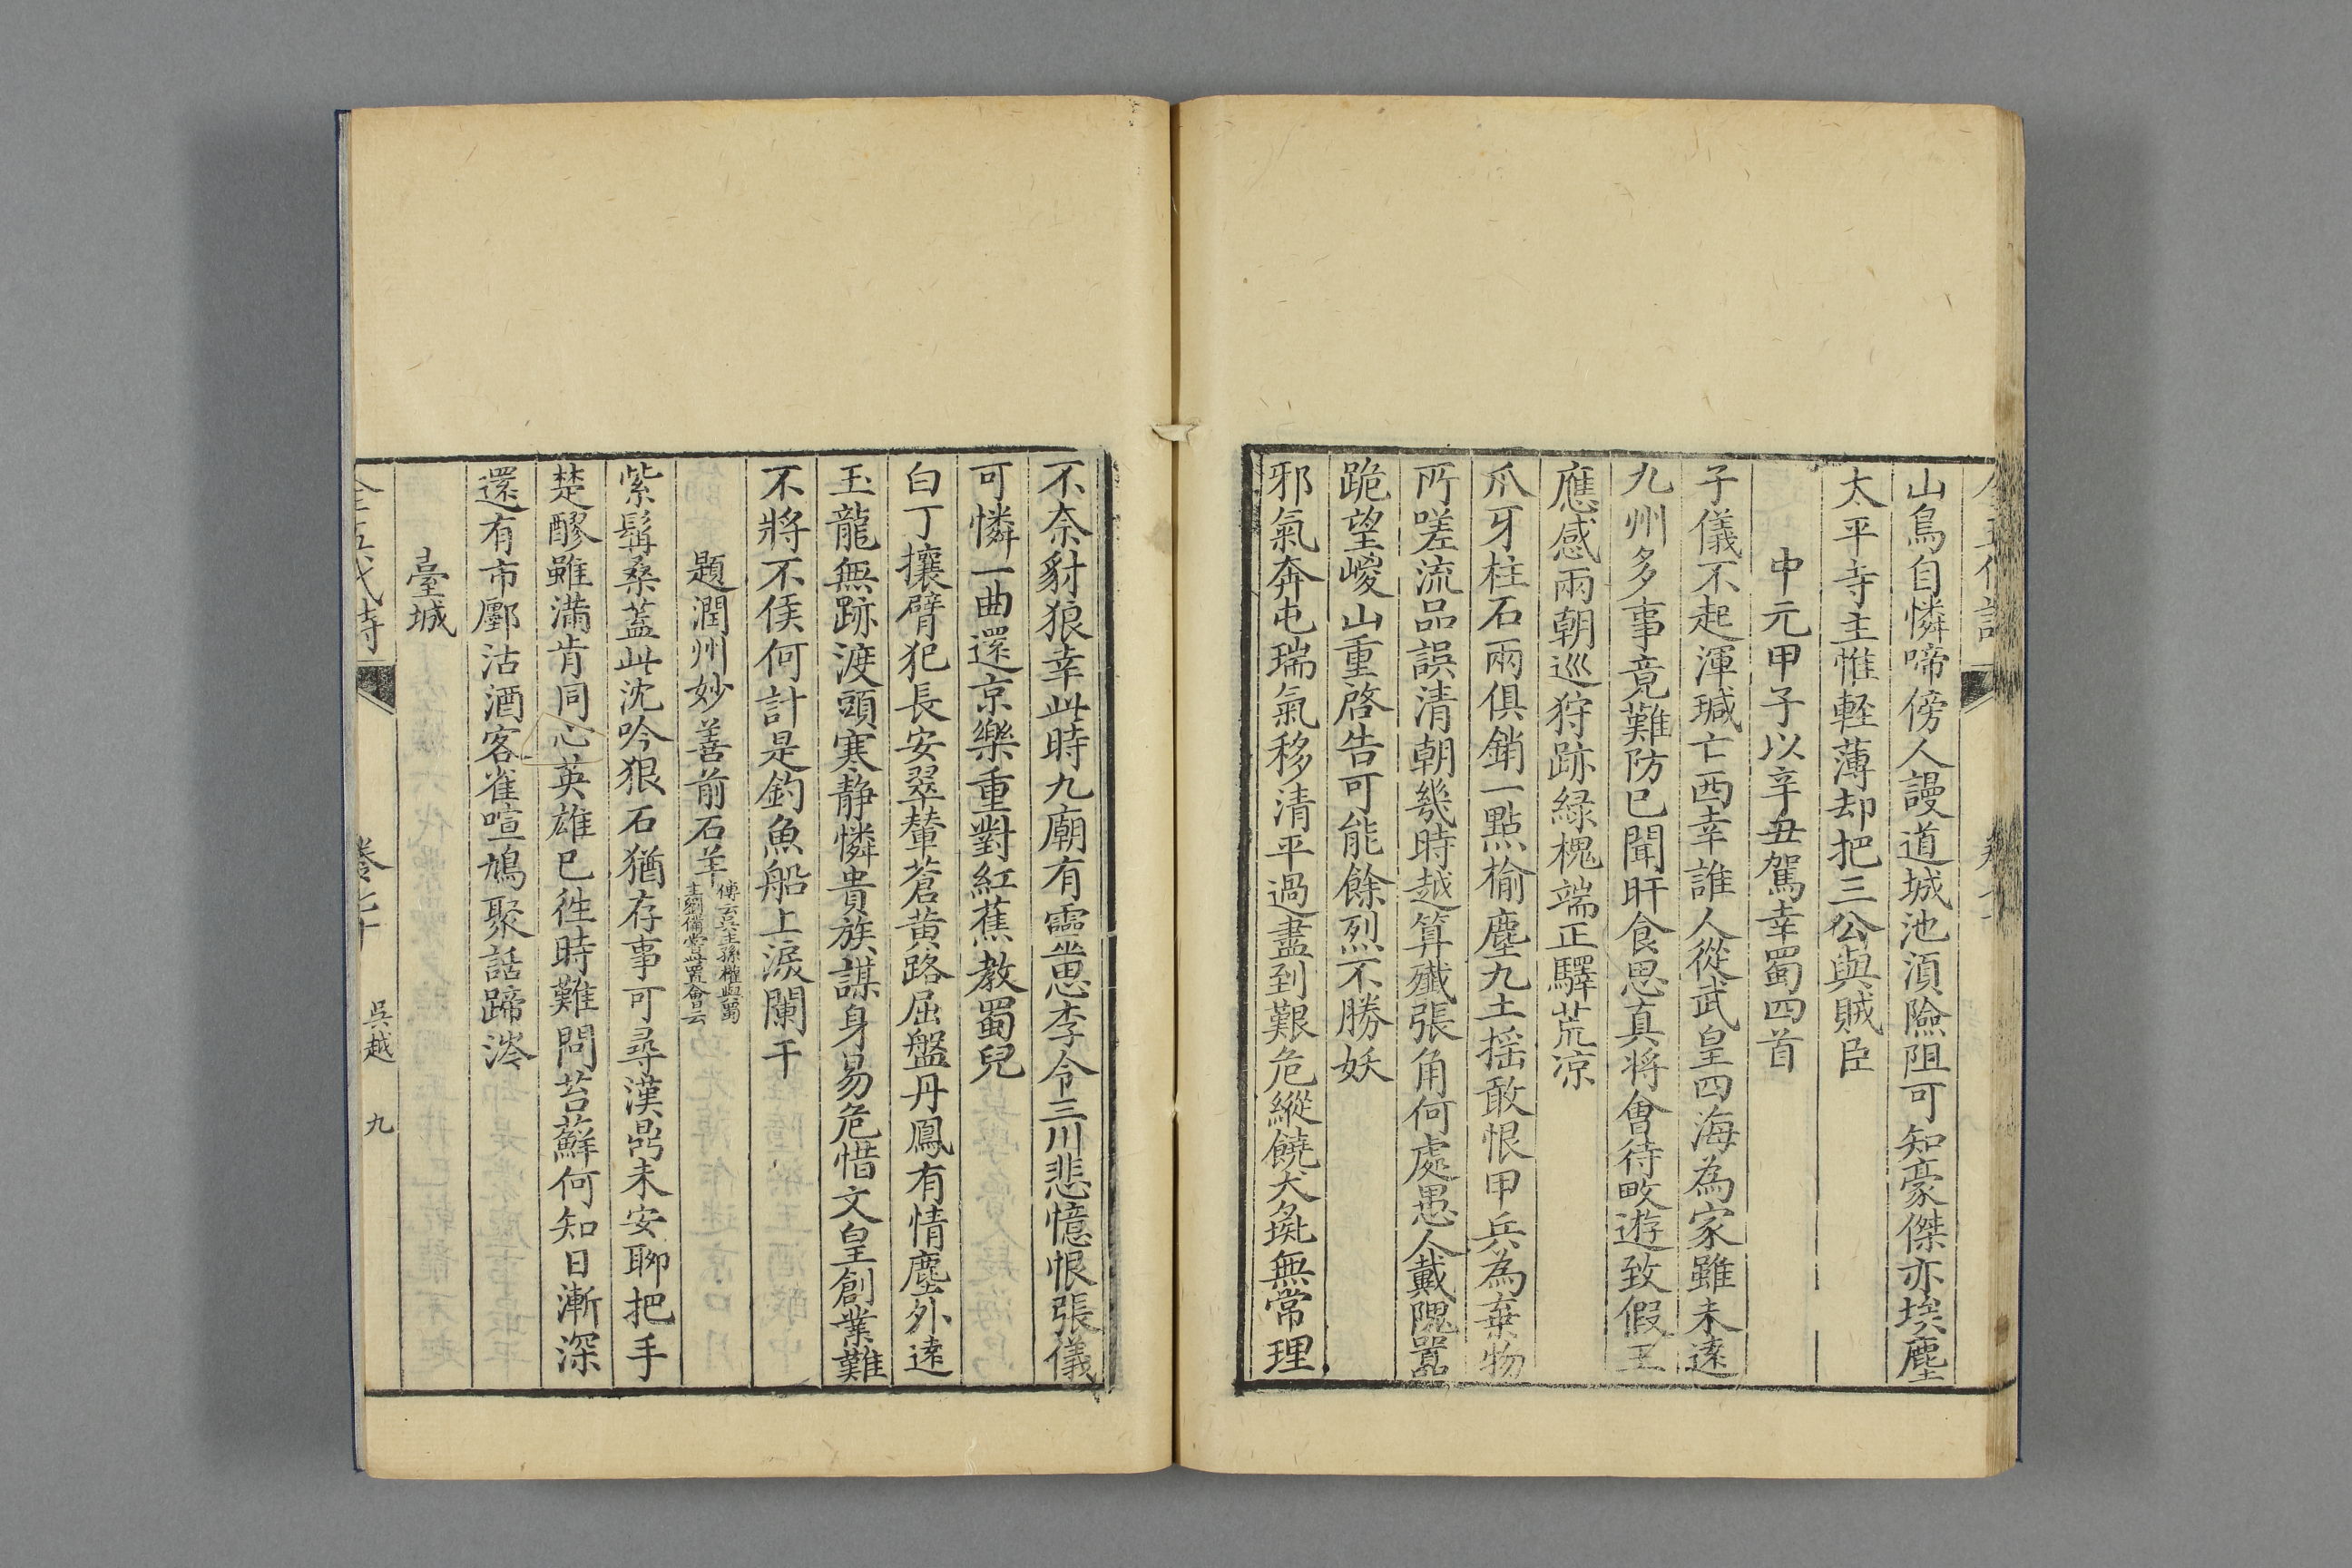 山鳥自憐啼傍人謾道城池湏險阻可知豪傑亦埃塵
太平寺主惟軽薄却把三公與賊臣
中元甲子以辛丑駕幸蜀四首
子儀不起渾瑊亡西幸誰人從武皇四海為家雖未逺
九州多事竟難防已聞旰食思真将會待畋遊致假王
應感兩朝巡狩跡緑槐端正驛荒凉
爪牙柱石兩俱銷一點榆塵九土揺敢恨甲兵為棄物
所嗟流品誤清朝㡬時越算殲張角何處愚人戴隗囂
跪望嵕山重啓告可能餘烈不勝妖
邪氣奔屯瑞氣移清平過盡到艱危縱饒犬彘無常理
不奈豺狼幸此時九廟有靈思李令三川悲憶恨張儀
可憐一曲還京樂重對紅蕉教蜀兒
白丁攘臂犯長安翠輦蒼黄路屈盤丹鳳有情塵外逺
玉龍無跡渡頭寒静憐貴族謀身易危惜文皇創業難
不將不侯何計是釣魚船上淚闌干
題潤州妙善前石羊傳云吳主孫權與蜀主劉備嘗此置會云
紫髯桑蓋此沈吟狠石猶存事可尋漢鼎未安聊把手
楚醪雖滿肯同心英雄已徃時難問苔蘚何知日漸深
還有市鄽沽酒客雀喧鳩聚話蹄涔
臺城
全五代詩 卷七十 吳越 九